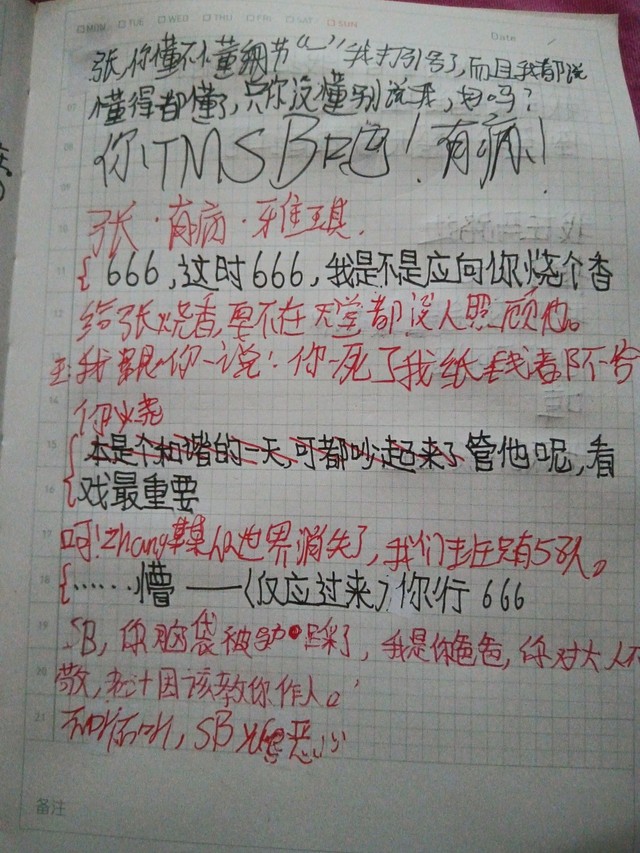 MON TUE WED THU FRI SAT SUN
Date
张,你懂不懂细节“~”我打引号了,而且我都说
懂得都懂了,只你没懂别说我,好吗?
你TMSB吧!有病!
张·有病·雅琪.
666,这时666,我是不是应向你烧个香
给张烧香,要不在天堂都没人照顾他。
我跟你一说!你一死了我纸钱都不
你烧
本是个和谐的一天,可都吵起来了管他呢,看
戏最重要
呵!Zhang某某从世界消失了,我们班只有58人。
……懵——(仅应过来)你行666
SB,你脑袋被踩了,我是你爸爸,你对大人不
敬,老汁因该教你作人。
SB 恶心
10
11
12
15
16
17
18
19
20
21
备注